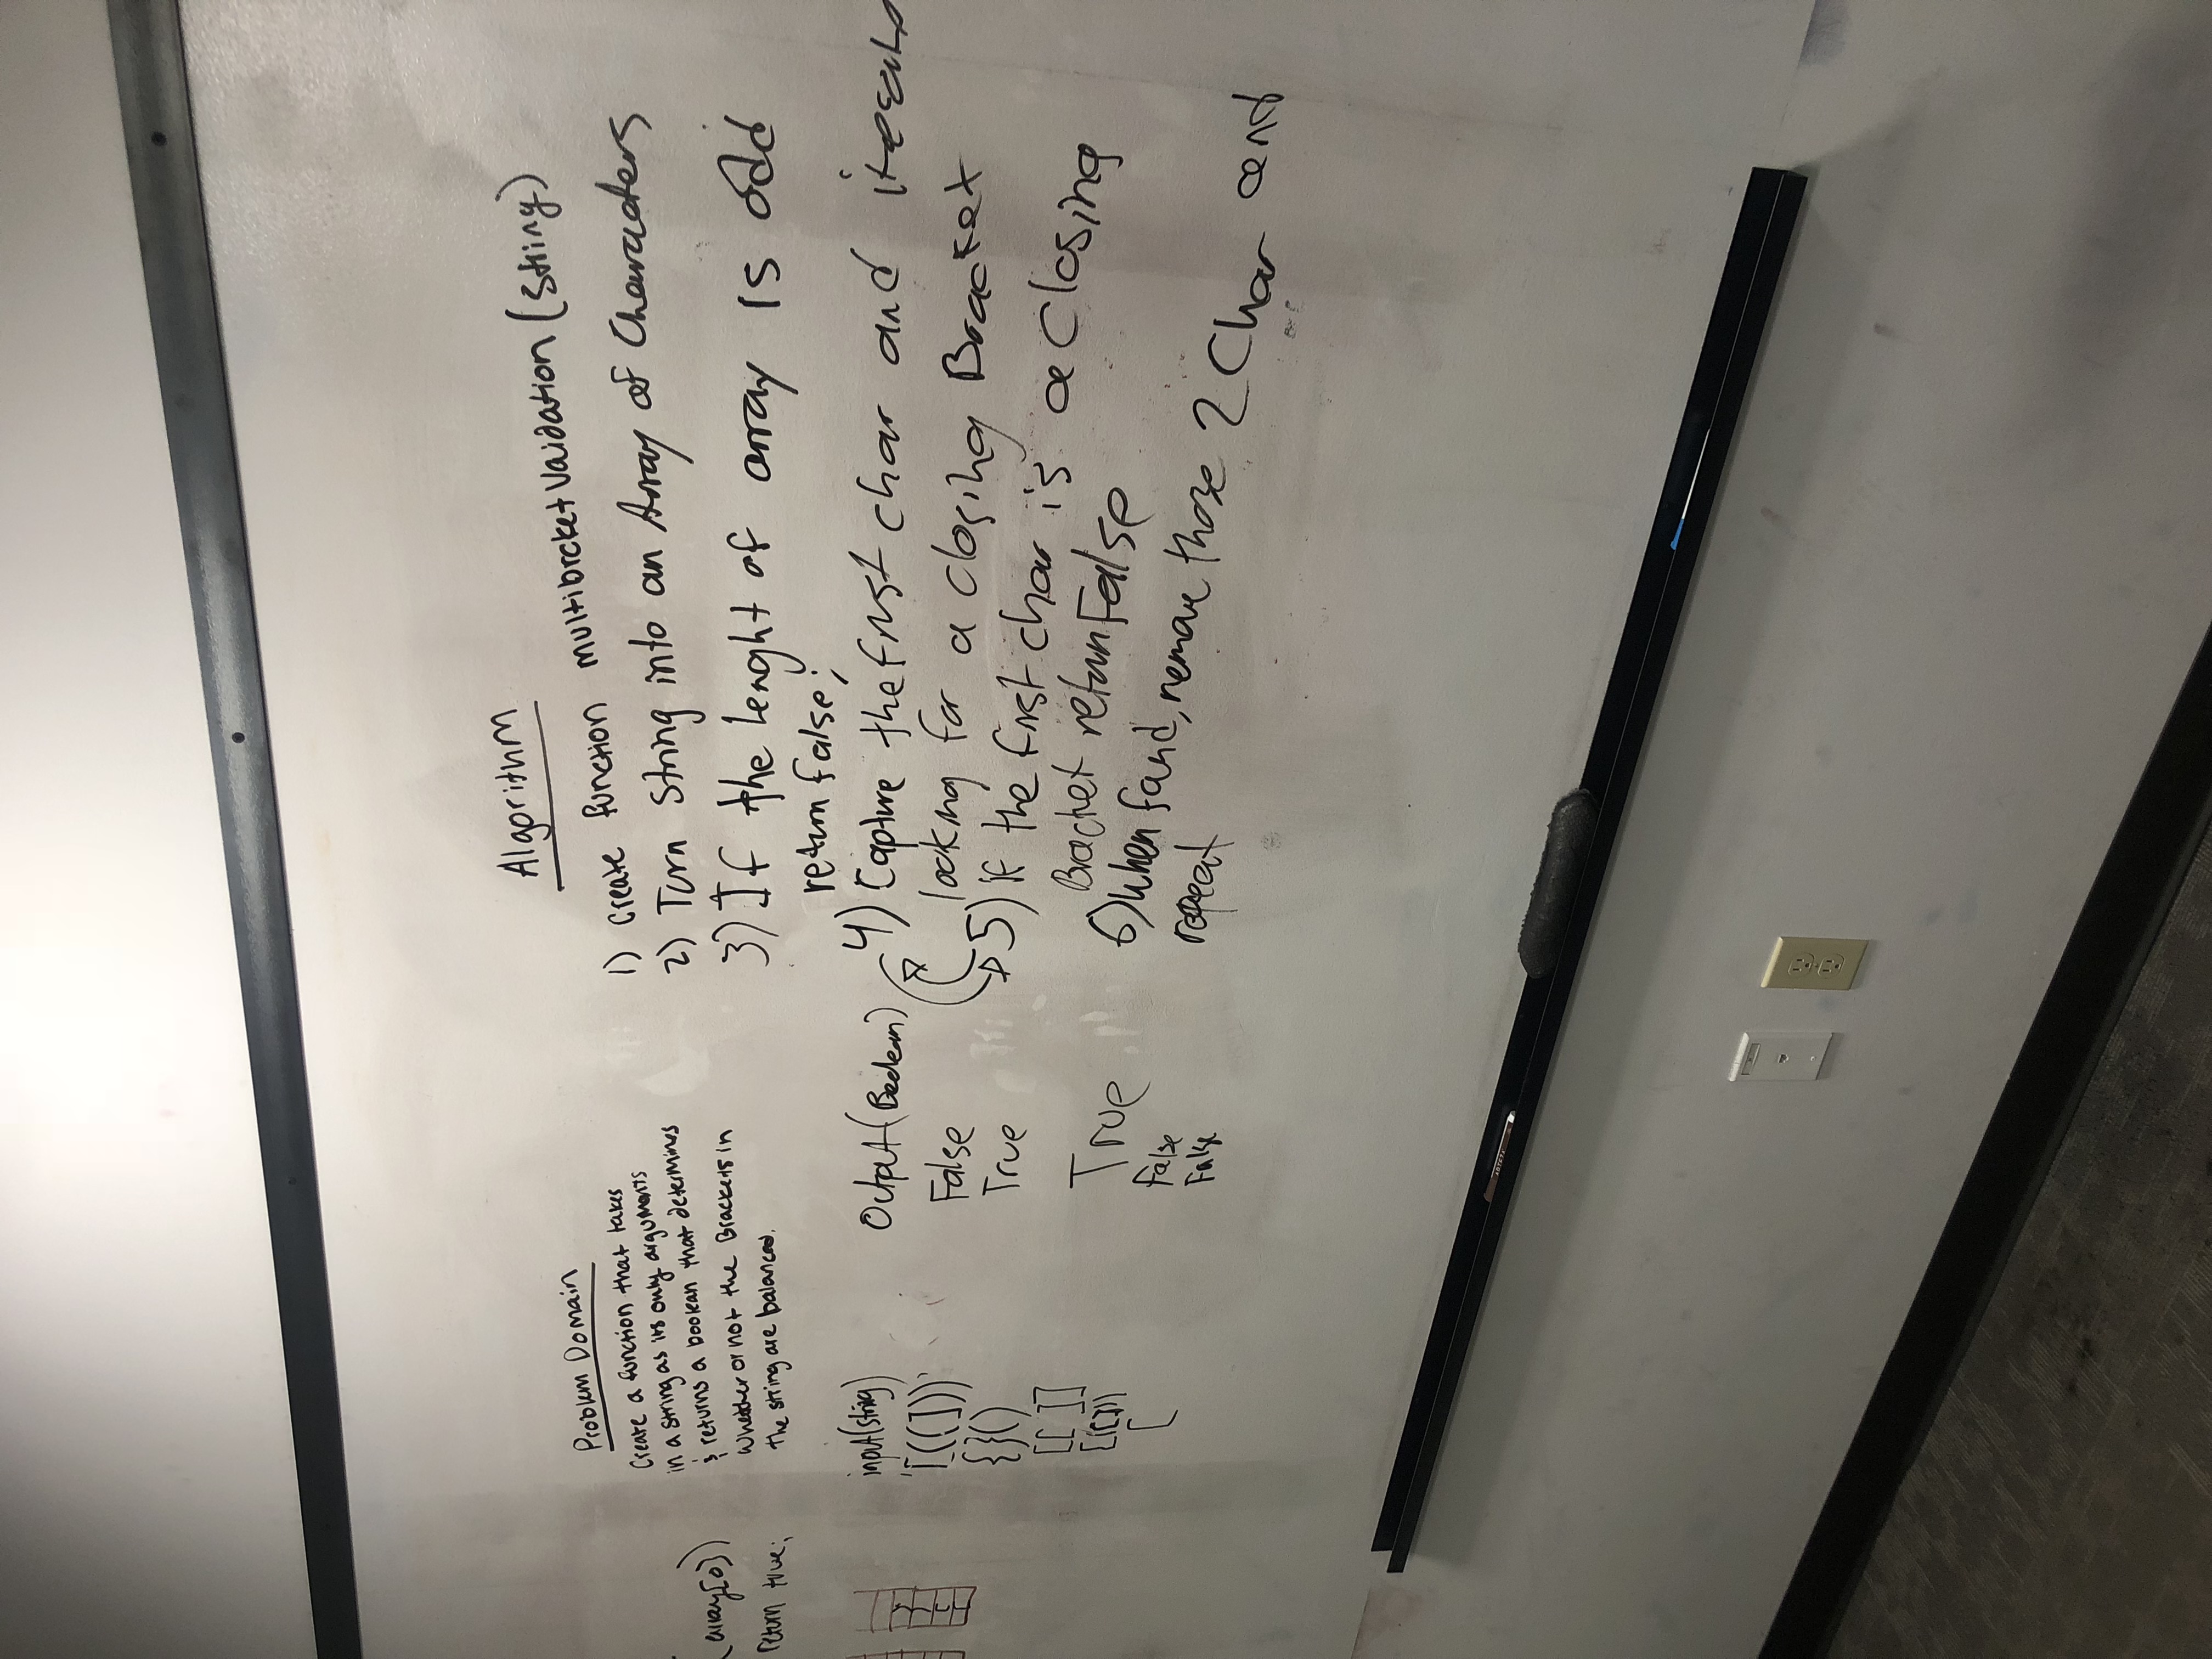 (array[0])
return true;
Problem Domain
Create a function that takes
in a string as its only arguments
& returns a boolean that determines
whether or not the Brackets in
the string are balanced.
input(string)
'[((]))'
{}()
[[ ]]
[
Output(Boolean)
False
True
True
False
False
Algorithm
1) Create function multibrcketVaidation(String)
2) Turn String into an Array of Characters
3) If the lenght of array is odd
return false;
4) Capture the first char and iterate
looking for a closing Bracket
5) if the first char is a Closing
Bracket return False
6) when found, remove those 2 Char and
repeat